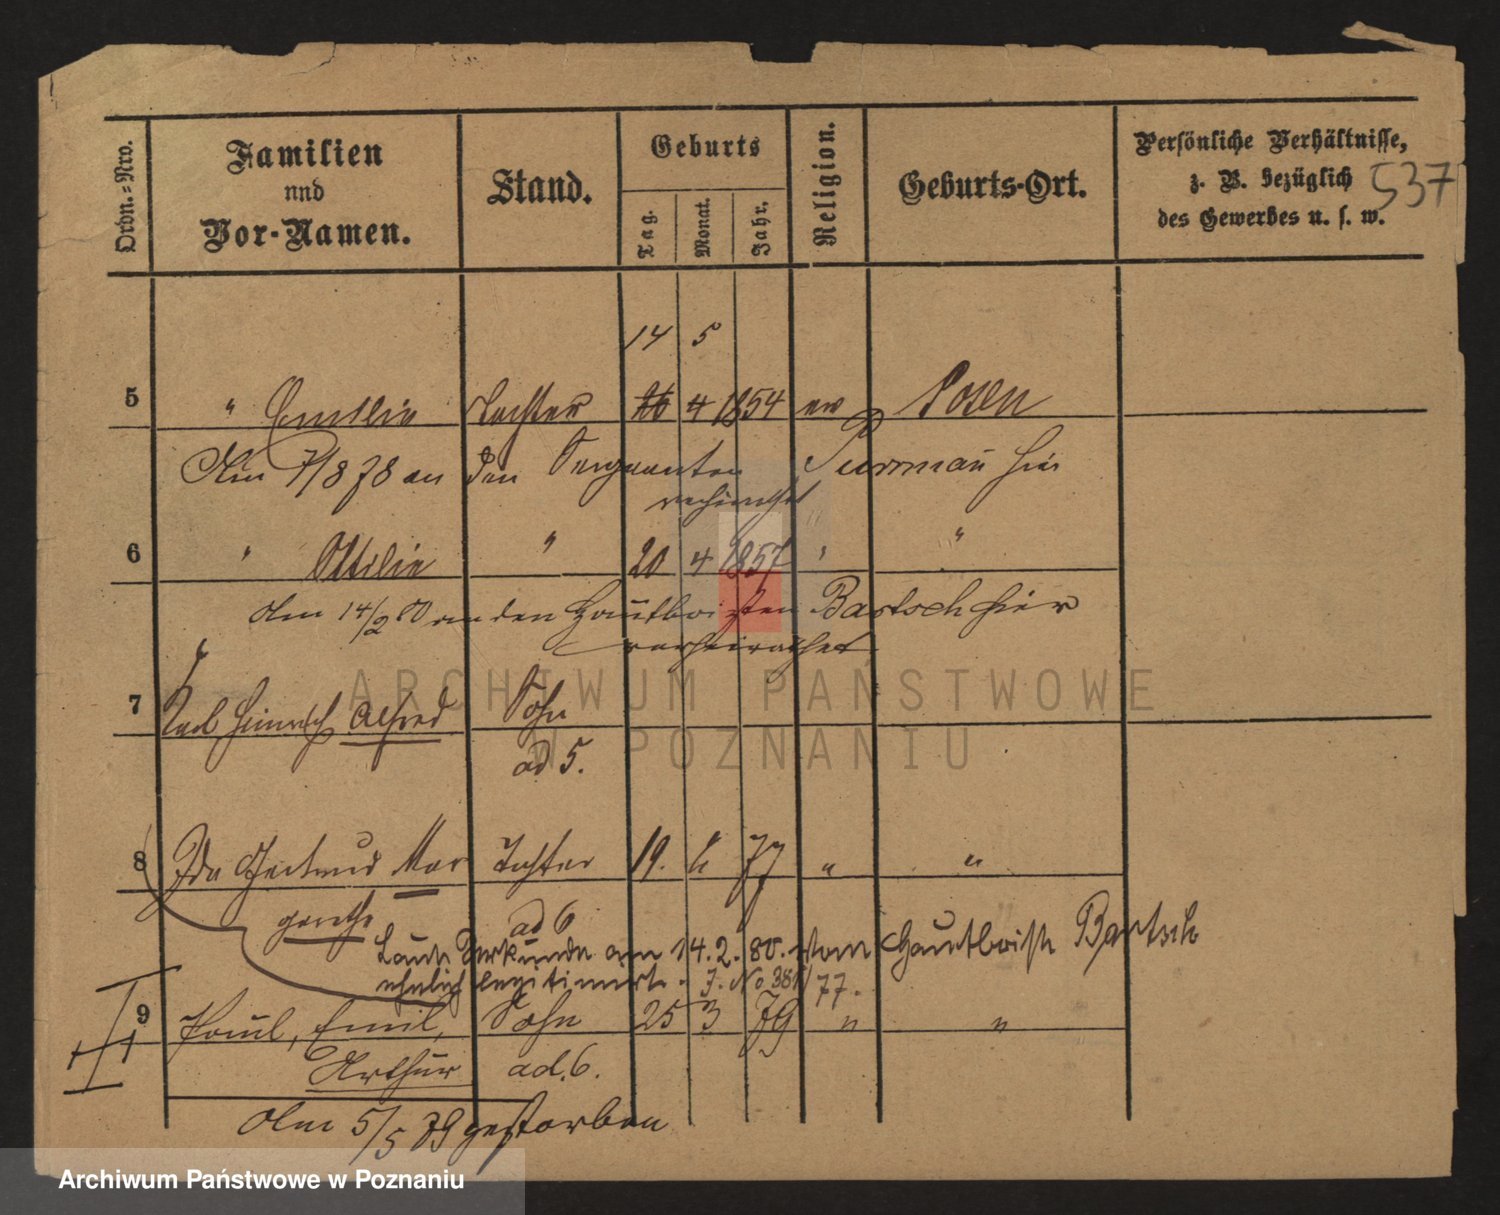 Ordn.=Nro.
Familien
und
Vor-Namen.
Stand.
Geburts
Tag.
Monat.
Jahr.
Religion.
Geburts-Ort.
Persönliche Verhältnisse,
z. B. bezüglich
des Gewerbes u. s. w.
537
14 5
5 " Emilie Tochter 26 4 1854 ev Posen
Am 7/8 78 an den Sergeanten Purmann hier
verheirathet
6 " Ottilie " 20 4 1857 " "
Am 14/2 80 an den Hautboisten Bartsch hier
verheirathet
7 Karl Heinrich Alfred Sohn
ad 5.
8 Ida Gertrud Mar Tochter 19. 6 77 " "
garethe ad 6
Laut Urkunde am 14.2.80. vom Hautboist Bartsch
ehelich legitimirt. J. No 381/77.
9 Paul, Emil, Sohn 25 3 79 " "
Arthur ad. 6.
Am 5/5 79 gestorben
ARCHIWUM PAŃSTWOWE
W POZNANIU
Archiwum Państwowe w Poznaniu